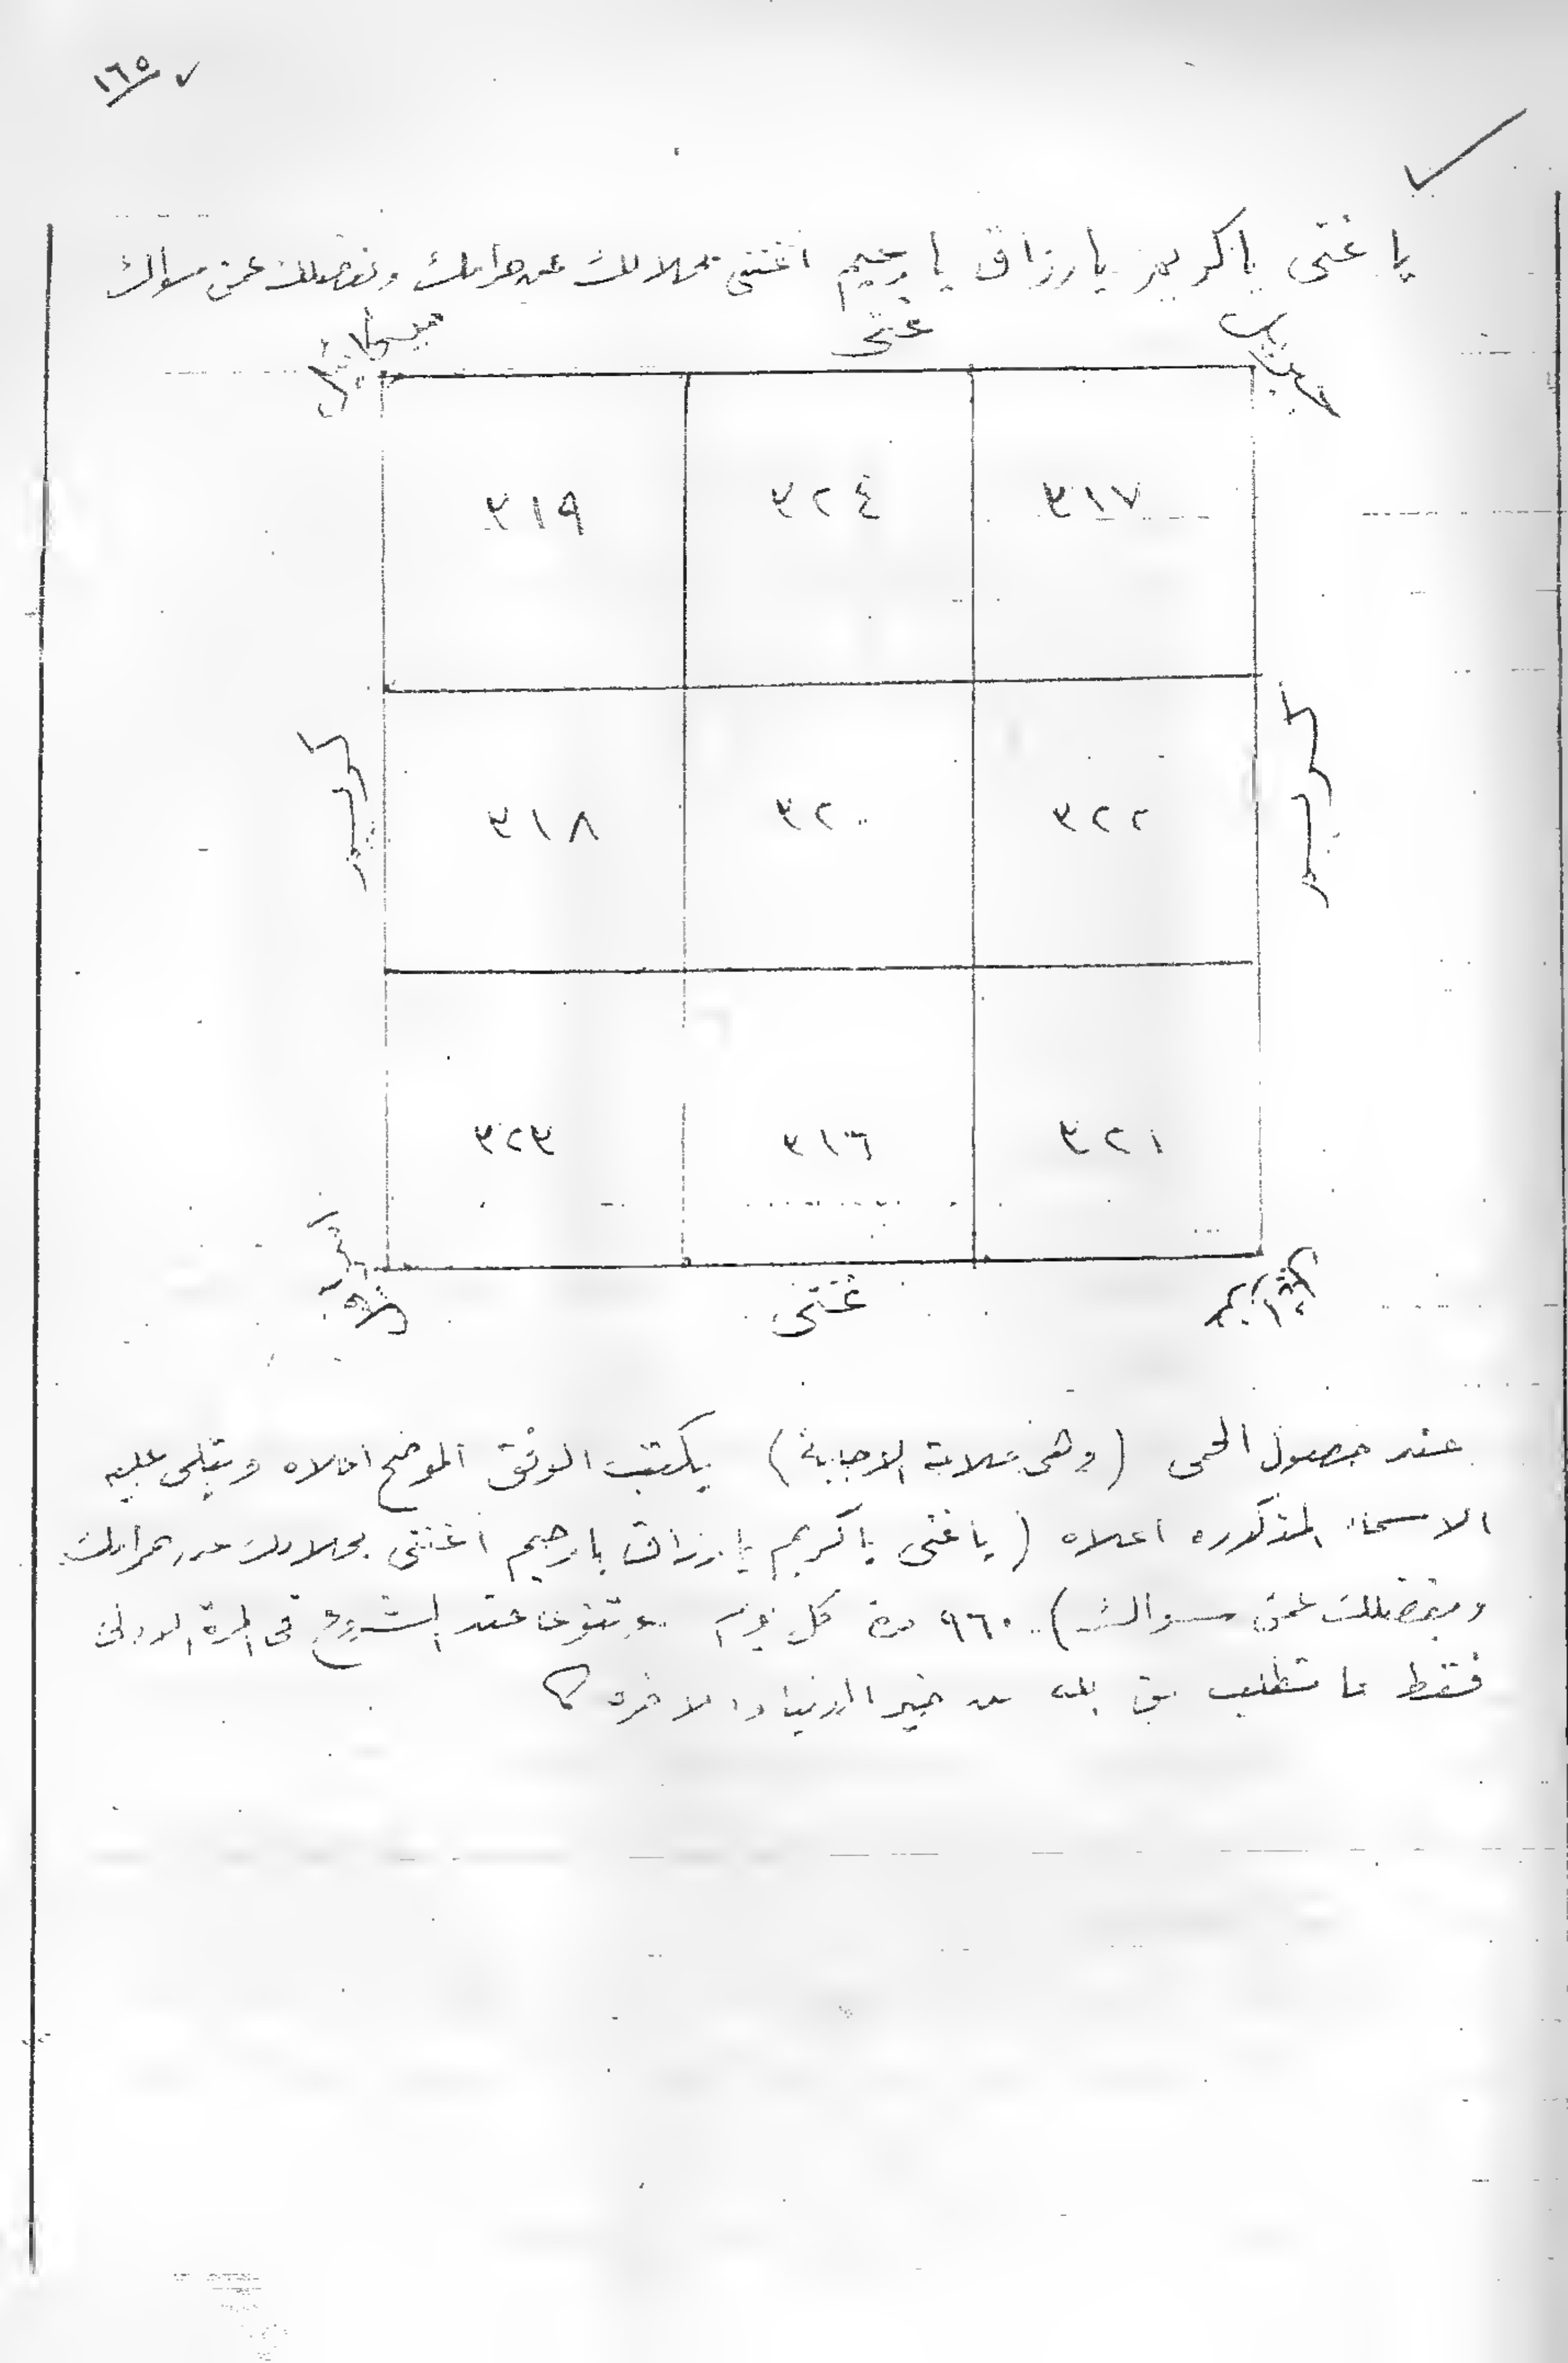 ١٦٥
يا غنى يا كريم يا رزاق يا رحيم اغننى بحلالك عن حرامك وبفضلك عمن سواك
جبرائيل غنى ميكائيل
٣١٩ ٣٢٤ ٣١٧
كريم كريم
٣١٨ ٣٢٠ ٣٢٢
٣٢٣ ٣١٦ ٣٢١
غنى
عند حصول الحمى (وهى علامة الاجابة) يكتب الوفق الموضح اعلاه ويتلى عليه
الاسماء المذكوره اعلاه (يا غنى يا كريم يا رزاق يا رحيم اغننى بحلالك عن حرامك
وبفضلك عمن سواك) ٩٦٠ مرة كل يوم وتنوى عند الشروع فى المرة الاولى
فقط ما تطلب من الله من خير الدنيا والاخره